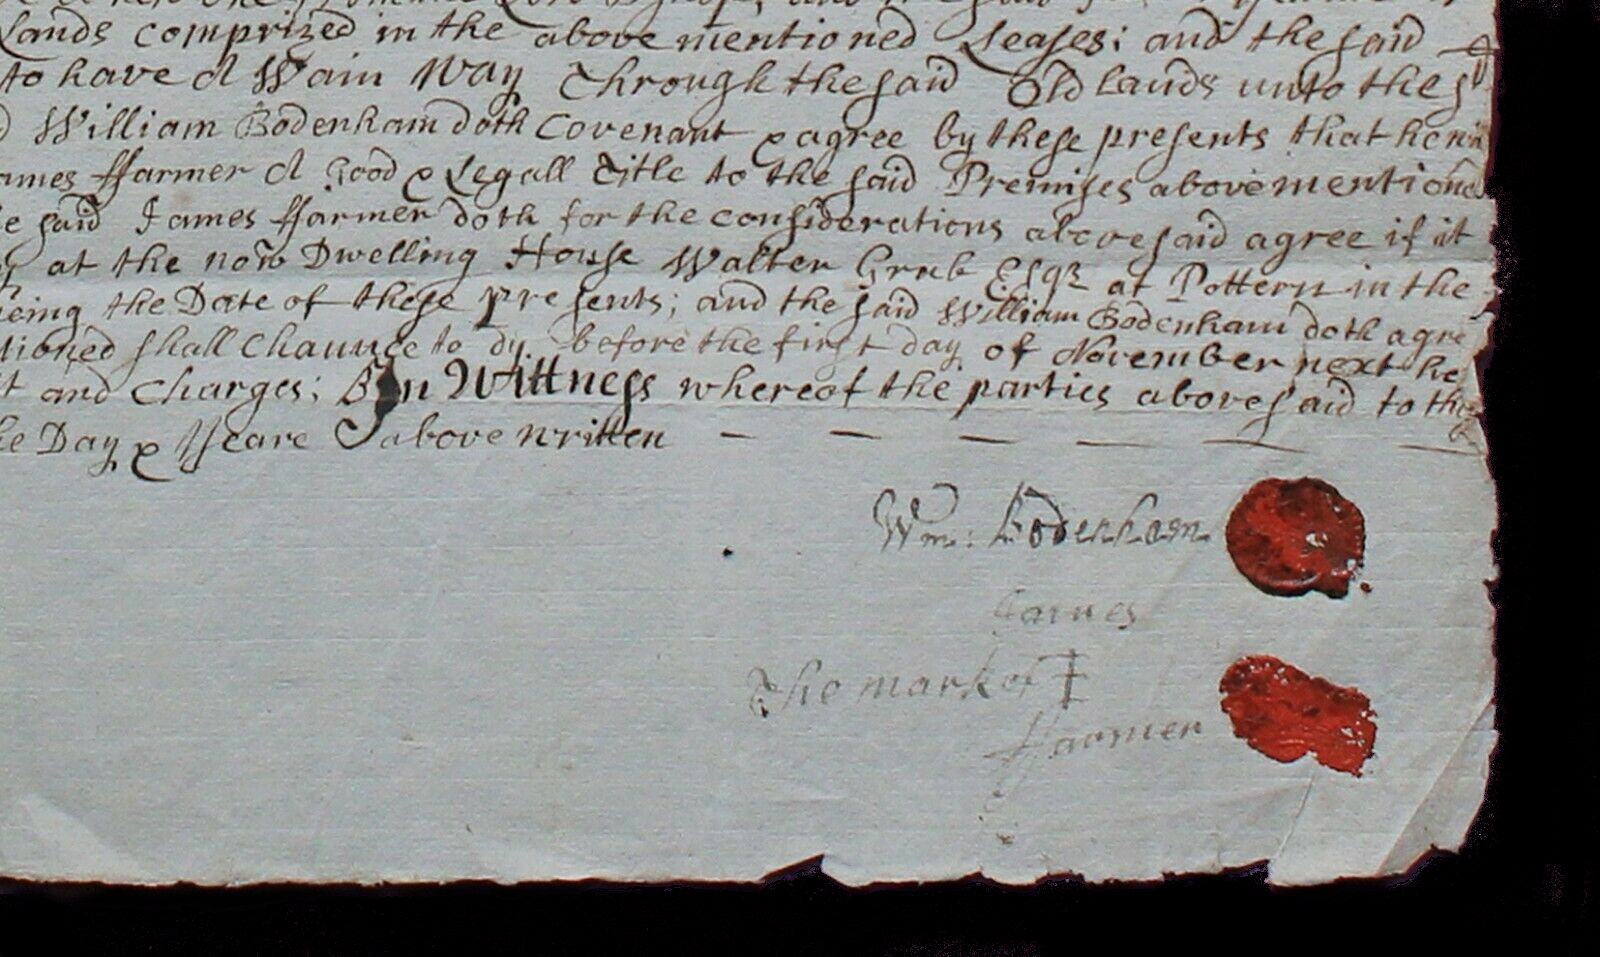 Lands comprized in the above mentioned Leases: and the said
to have A Wain Way Through the said Old Lands unto the s
William Bodenham doth Covenant & agree by these presents that he
ames ffarmer A Good & Legall Title to the said Premises above mentione
said James ffarmer doth for the considerations abovesaid agree if it
at the now Dwelling House Walter Grub Esqr at Pottern in the
eing the Date of these presents; and the said William Bodenham doth agre
tioned shall Chaunce to dy before the first day of November next he
t and Charges; In Wittness whereof the parties abovesaid to
he Day & Yeare above written
Wm: Bodenham
James
The mark of
ffarmer